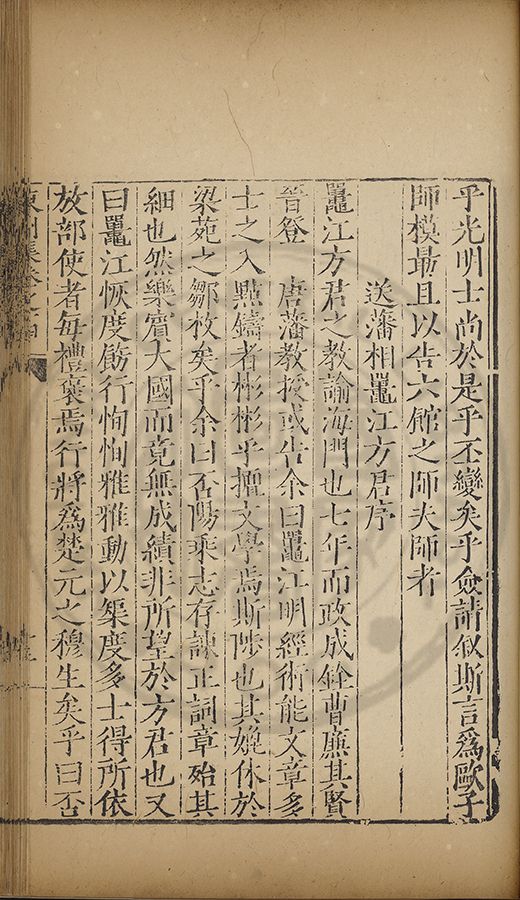 乎光明士尚於是乎丕變矣乎僉請似斯言爲歐子
師模最且以告六館之師夫師者
送藩相鼉江方君序
鼉江方君之教諭海門也七年而政成銓曹廉其賢
晉登 唐藩教授或告余曰鼉江明經術能文章多
士之入點鑄者彬彬乎擅文學焉斯陟也其媲休於
梁苑之鄒枚矣乎余曰否陽乘志存諫正詞章殆其
細也然樂賓大國而竟無成績非所望於方君也又
曰鼉江恢度飭行恂恂雅雅動以榘度多士得所依
放部使者每禮褎焉行將爲楚元之穆生矣乎曰否